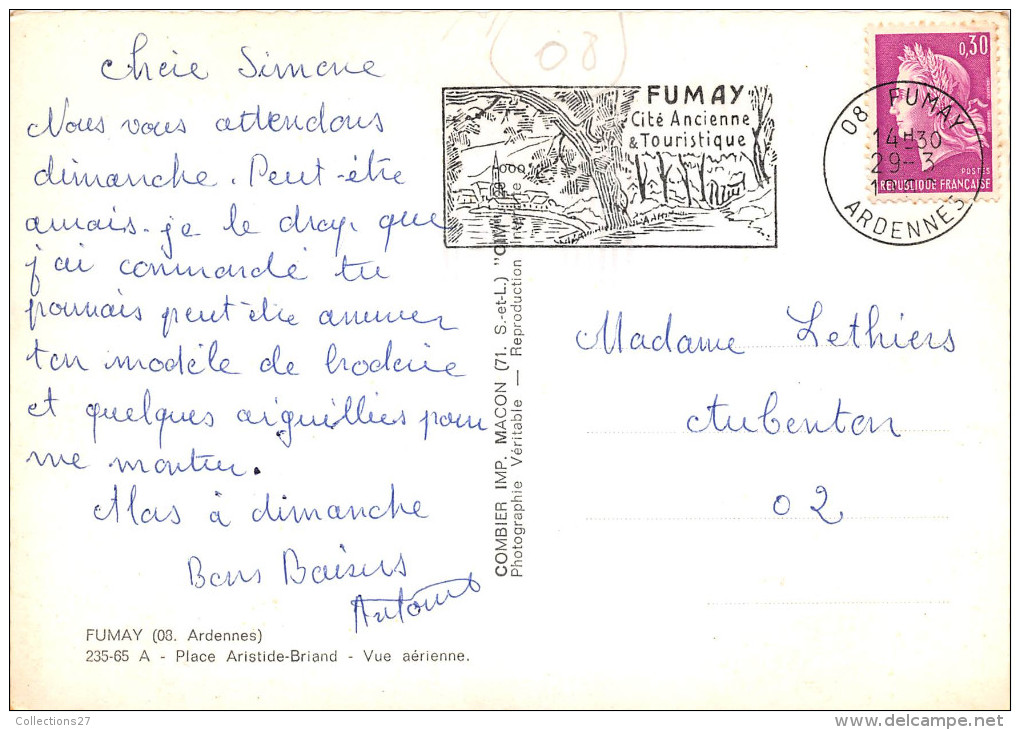 Chère Simone
Nous vous attendons
dimanche. Peut-être
aurais-je le drap que
j'ai commandé tu
pourrais peut être amener
ton modèle de broderie
et quelques aiguillées pour
me montrer.
Alors à dimanche
Bons Baisers
FUMAY (08. Ardennes)
235-65 A - Place Aristide-Briand - Vue aérienne.
COMBIER IMP. MACON (71. S.-et-L.) "CIM"
Photographie Véritable — Reproduction
08
FUMAY
Cité Ancienne
& Touristique
0,30
POSTES
REPUBLIQUE FRANÇAISE
08 FUMAY
14H30
29-3
ARDENNES
Madame Lethiers
Aubenton
02
Collections27
www.delcampe.net